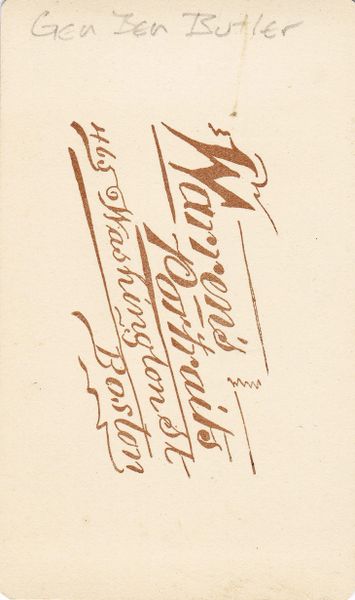 Gen Ben Butler
Warren's
Portraits
465 Washington St
Boston